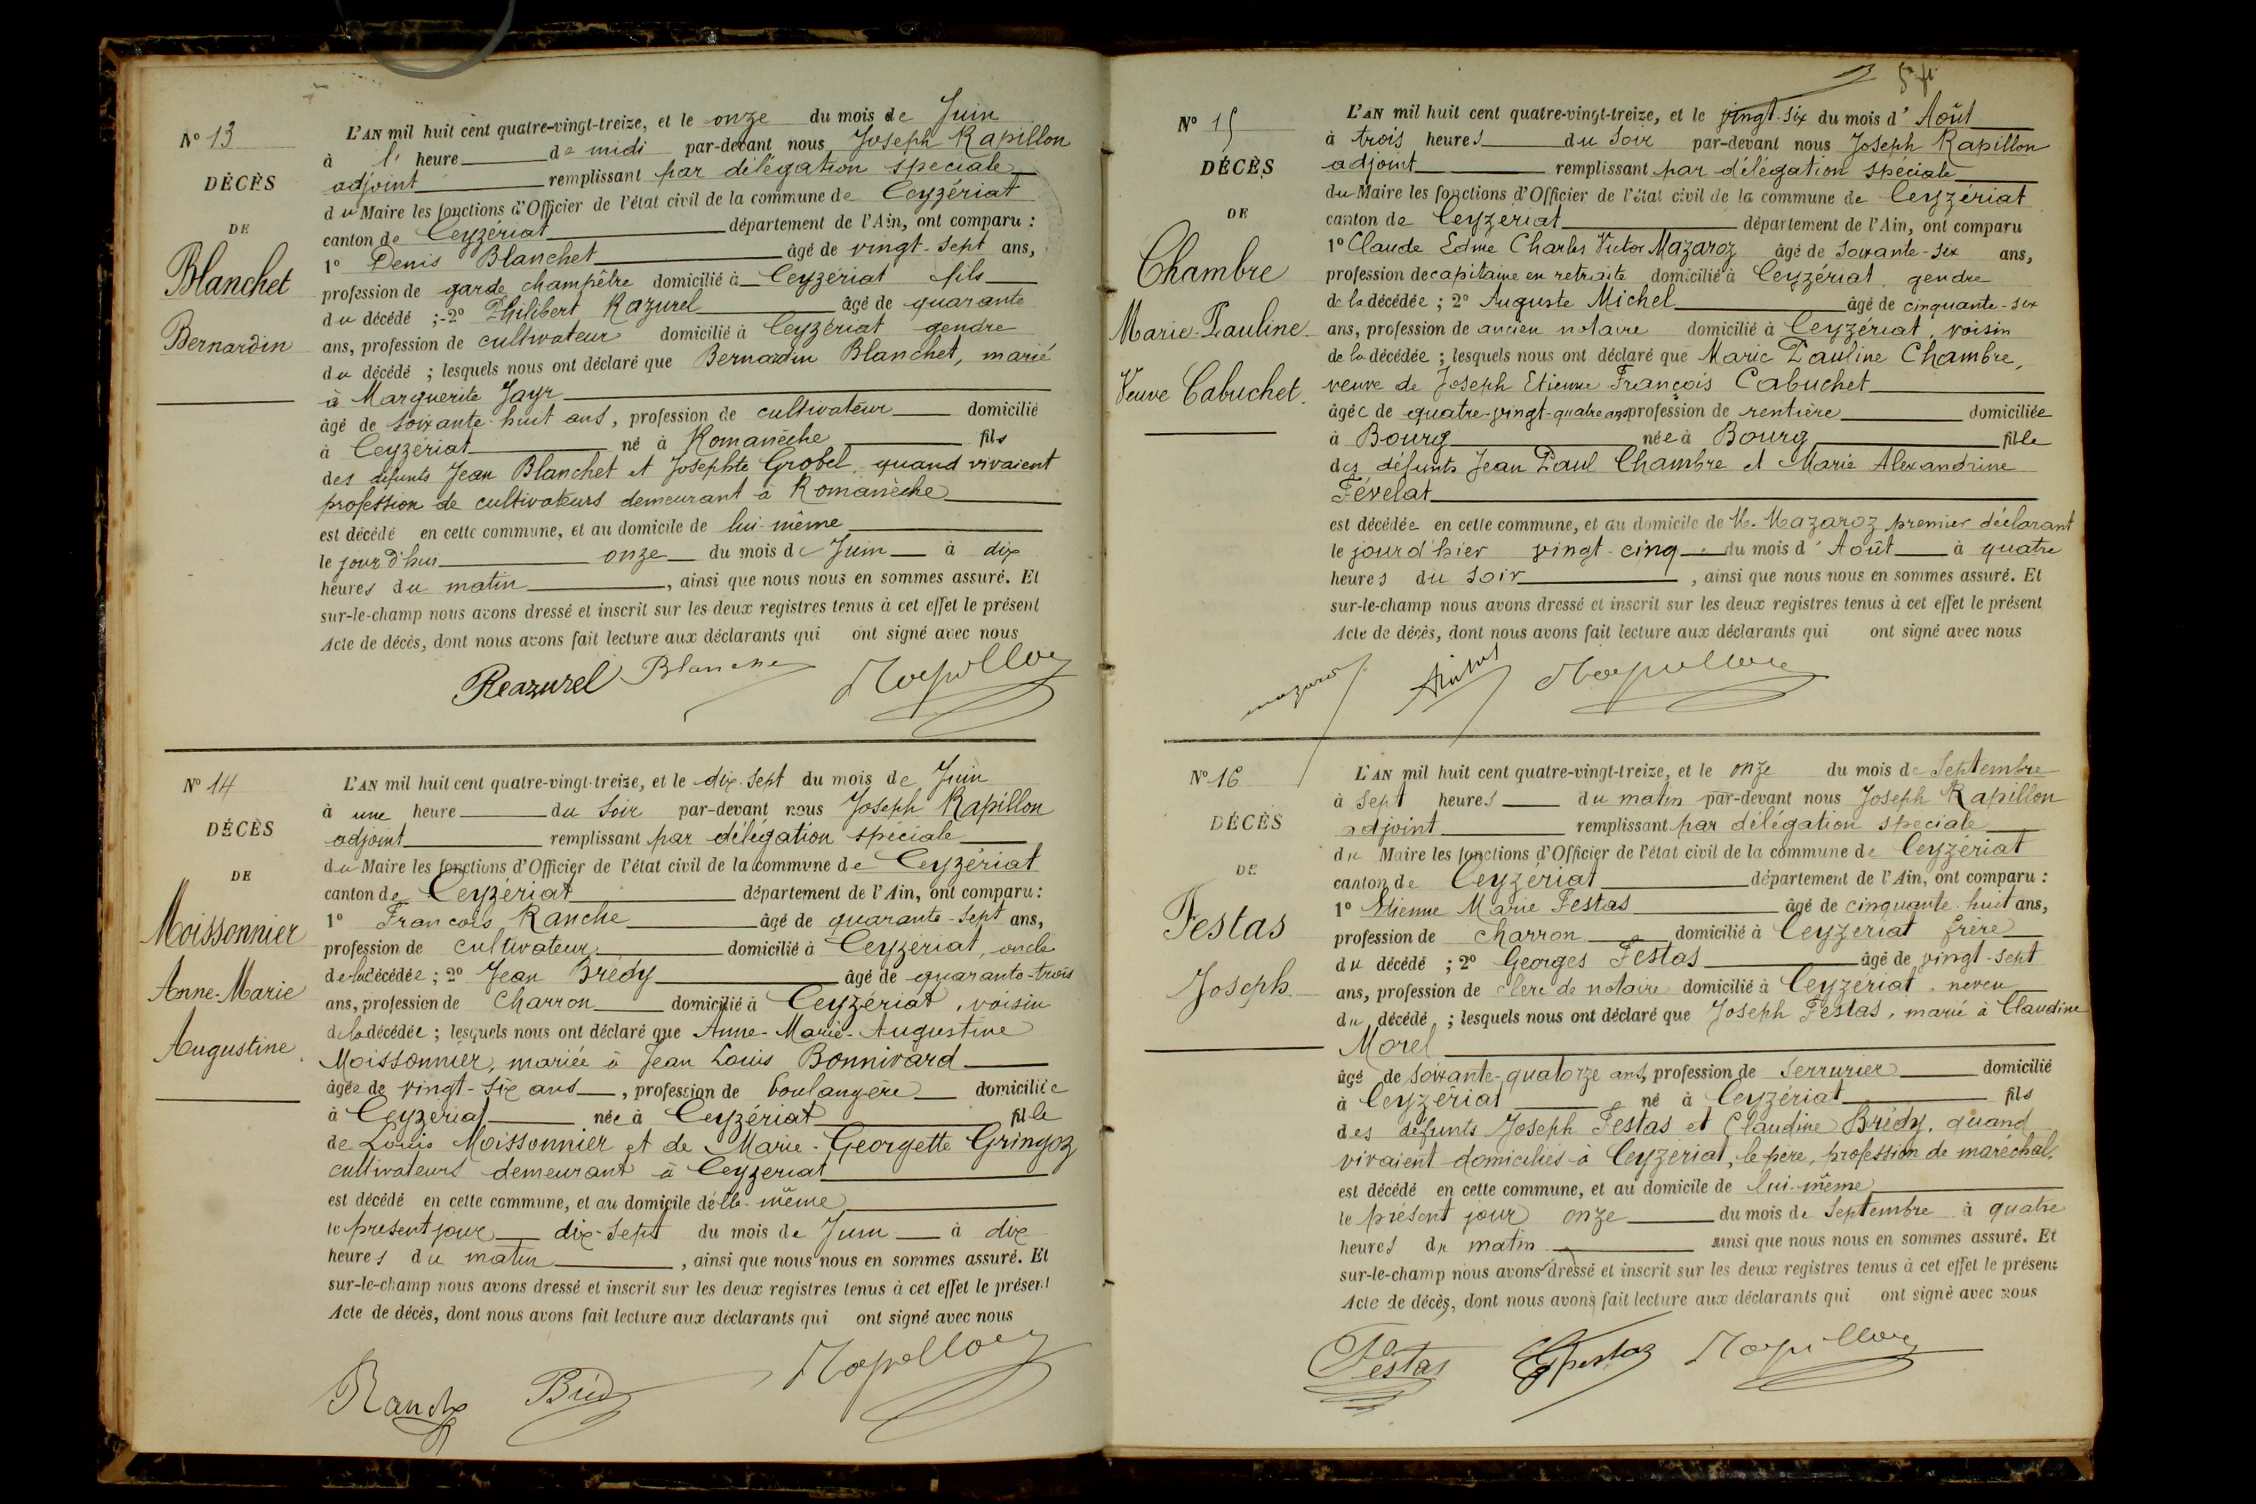 N° 13
DÉCÈS
DE
Blanchet
Bernardin
L'AN mil huit cent quatre-vingt-treize, et le onze du mois de Juin
à l' heure de midi par-devant nous Joseph Rapillon
adjoint remplissant par délégation spéciale
du Maire les fonctions d'Officier de l'état civil de la commune de Ceyzériat
canton de Ceyzériat département de l'Ain, ont comparu :
1° Denis Blanchet âgé de vingt-sept ans,
profession de garde champêtre domicilié à Ceyzériat fils
du décédé ; 2° Philibert Razurel âgé de quarante
ans, profession de cultivateur domicilié à Ceyzériat gendre
du décédé ; lesquels nous ont déclaré que Bernardin Blanchet, marié
à Marguerite Jayr
âgé de soixante-huit ans, profession de cultivateur domicilié
à Ceyzériat né à Romanèche fils
des défunts Jean Blanchet et Josephte Grobel, quand vivaient
profession de cultivateurs demeurant à Romanèche
est décédé en cette commune, et au domicile de lui-même
le jour d'hui onze du mois de Juin à dix
heures du matin, ainsi que nous nous en sommes assuré. Et
sur-le-champ nous avons dressé et inscrit sur les deux registres tenus à cet effet le présent
Acte de décès, dont nous avons fait lecture aux déclarants qui ont signé avec nous
Reazurel Blanche Rapillon
N° 14
DÉCÈS
DE
Moissonnier
Anne-Marie
Augustine.
L'AN mil huit cent quatre-vingt-treize, et le dix-sept du mois de Juin
à une heure du soir par-devant nous Joseph Rapillon
adjoint remplissant par délégation spéciale
du Maire les fonctions d'Officier de l'état civil de la commune de Ceyzériat
canton de Ceyzériat département de l'Ain, ont comparu :
1° François Ranche âgé de quarante-sept ans,
profession de cultivateur domicilié à Ceyzériat, oncle
de la décédée ; 2° Jean Brédy âgé de quarante-trois
ans, profession de charron domicilié à Ceyzériat, voisin
de la décédée ; lesquels nous ont déclaré que Anne-Marie-Augustine
Moissonnier, mariée à Jean Louis Bonnivard
âgée de vingt-six ans, profession de boulangère domiciliée
à Ceyzeriat née à Ceyzériat fille
de Louis Moissonnier et de Marie-Georgette Gringoz
cultivateurs demeurant à Ceyzeriat
est décédé en cette commune, et au domicile d'elle-même
le présent jour dix-sept du mois de Juin à dix
heures du matin, ainsi que nous nous en sommes assuré. Et
sur-le-champ nous avons dressé et inscrit sur les deux registres tenus à cet effet le présent
Acte de décès, dont nous avons fait lecture aux déclarants qui ont signé avec nous
Ranche Brédy Rapillon
N° 15
DÉCÈS
DE
Chambre
Marie-Pauline
Veuve Cabuchet.
L'AN mil huit cent quatre-vingt-treize, et le vingt-six du mois d'Août
à trois heures du soir par-devant nous Joseph Rapillon
adjoint remplissant par délégation spéciale
du Maire les fonctions d'Officier de l'état civil de la commune de Ceyzériat
canton de Ceyzériat département de l'Ain, ont comparu
1° Claude Edme Charles Victor Mazaroz âgé de soixante-six ans,
profession de capitaine en retraite domicilié à Ceyzériat, gendre
de la décédée ; 2° Auguste Michel âgé de cinquante-six
ans, profession de ancien notaire domicilié à Ceyzériat, voisin
de la décédée ; lesquels nous ont déclaré que Marie Pauline Chambre,
veuve de Joseph Etienne François Cabuchet
âgée de quatre-vingt-quatre ans profession de rentière domiciliée
à Bourg née à Bourg fille
des défunts Jean Paul Chambre et Marie Alexandrine
Févelat
est décédée en cette commune, et au domicile de M. Mazaroz premier déclarant
le jour d'hier vingt-cinq du mois d'Août à quatre
heures du soir, ainsi que nous nous en sommes assuré. Et
sur-le-champ nous avons dressé et inscrit sur les deux registres tenus à cet effet le présent
Acte de décès, dont nous avons fait lecture aux déclarants qui ont signé avec nous
mazaroz Michel Rapillon
N° 16
DÉCÈS
DE
Festas
Joseph.
L'AN mil huit cent quatre-vingt-treize, et le onze du mois de Septembre
à sept heures du matin par-devant nous Joseph Rapillon
adjoint remplissant par délégation spéciale
du Maire les fonctions d'Officier de l'état civil de la commune de Ceyzériat
canton de Ceyzériat département de l'Ain, ont comparu :
1° Etienne Marie Festas âgé de cinquante-huit ans,
profession de charron domicilié à Ceyzériat frère
du décédé ; 2° Georges Festas âgé de vingt-sept
ans, profession de clerc de notaire domicilié à Ceyzériat, neveu
du décédé ; lesquels nous ont déclaré que Joseph Festas, marié à Claudine
Morel
âgé de soixante-quatorze ans, profession de serrurier domicilié
à Ceyzériat né à Ceyzériat fils
des défunts Joseph Festas et Claudine Brédy, quand
vivaient domiciliés à Ceyzeriat, le père, profession de maréchal.
est décédé en cette commune, et au domicile de lui-même
le présent jour onze du mois de Septembre à quatre
heures du matin ainsi que nous nous en sommes assuré. Et
sur-le-champ nous avons dressé et inscrit sur les deux registres tenus à cet effet le présent
Acte de décès, dont nous avons fait lecture aux déclarants qui ont signé avec nous
Festas G Festas Rapillon